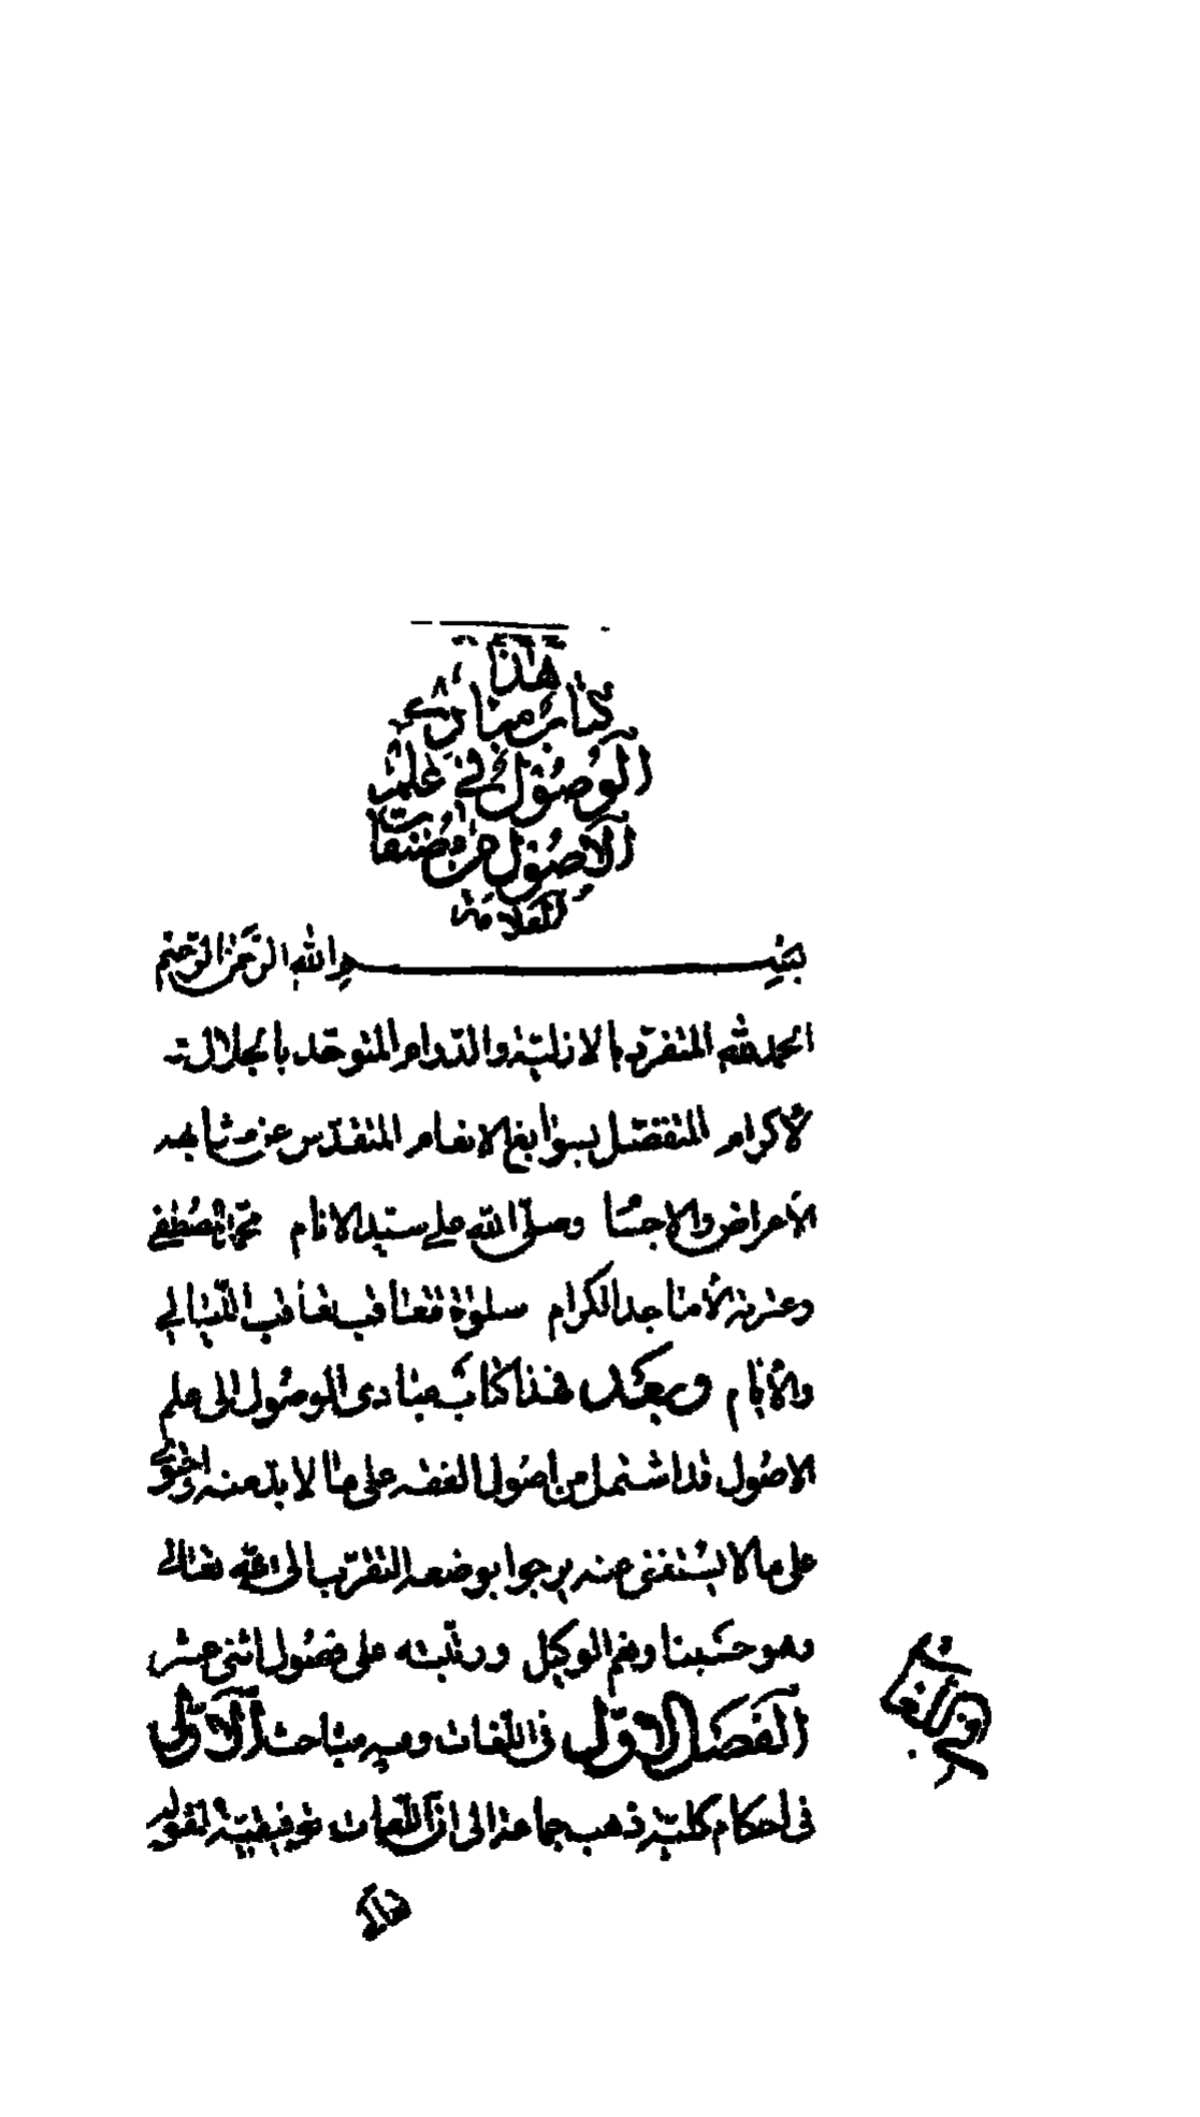 هذا
كتاب مبادئ
الوصول في علم
الأصول من مصنفات
العلامة
بسم الله الرحمن الرحيم
الحمد لله المتفرد بالازلية والدوام المتوحد بالجلال و
الأكرام المتفضل بسوابغ الانعام المتقدس عن مشابهة
الأعراض والاجسام وصلى الله على سيد الانام محمد المصطفى
وعترته الأماجد الكرام صلوة تتعاقب تعاقب الليالي
والأيام وبعد فهذا كتاب مبادى الوصول الى علم
الاصول قد اشتمل من اصول الفقه على ما لا بد منه واحتوى
على ما لا يستغنى عنه نرجوا بوضعه التقرب الى الله تعالى
وهو حسبنا ونعم الوكيل ورتبته على فصول اثنى عشر
الفصل الاول فى اللغات وفيه مباحث الأولى
فى احكام كلية ذهب جماعة الى ان اللغات توقيفية لقوله
تعالى
في اللغات